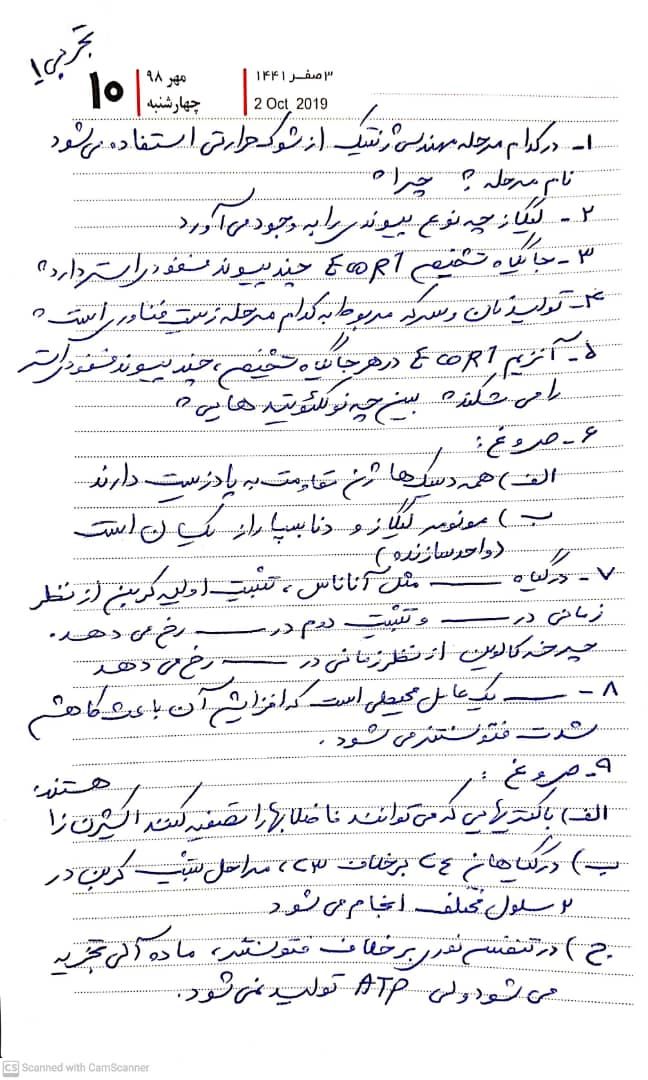 تجربی!
۱۰
مهر ۹۸
چهارشنبه
۳ صفر ۱۴۴۱
2 Oct 2019
۱- در کدام مرحله مهندسی ژنتیک از شوک حرارتی استفاده می شود
نام مرحله ؟ چرا ؟
۲- لیگاز چه نوع پیوندی را به وجود می آورد
۳- جایگاه تشخیص EcoR1 چند پیوند فسفودی استر دارد؟
۴- تولید نان و سرکه مربوط به کدام مرحله زیست فناوری است؟
۵- آنزیم EcoR1 در هر جایگاه تشخیص، چند پیوند فسفودی استر
را می شکند؟ بین چه نوکلئوتیدهایی؟
۶- ص و غ:
الف) همه دیسک ها ژن مقاومت به پادزیست دارند
ب) مونومر لیگاز و دنابسپاراز یکسان است
(واحد سازنده)
۷- در گیاه ــــ مثل آناناس، تثبیت اولیه کربن از نظر
زمانی در ــــ و تثبیت دوم در ــــ رخ می دهد.
چرخه کالوین از نظر زمانی در ــــ رخ می دهد
۸- ــــ یک عامل محیطی است که افزایش آن باعث کاهش
شدت فتوسنتز می شود.
۹- ص و غ:
الف) باکتریهایی که می توانند فاضلابها را تصفیه کنند اکسیژن زا هستند.
ب) در گیاهان C4 برخلاف C3، مراحل تثبیت کربن در
۲ سلول مختلف انجام می شود
ج) در تنفس نوری برخلاف فتوسنتز، ماده آلی تجزیه
می شود ولی ATP تولید نمی شود.
CS Scanned with CamScanner